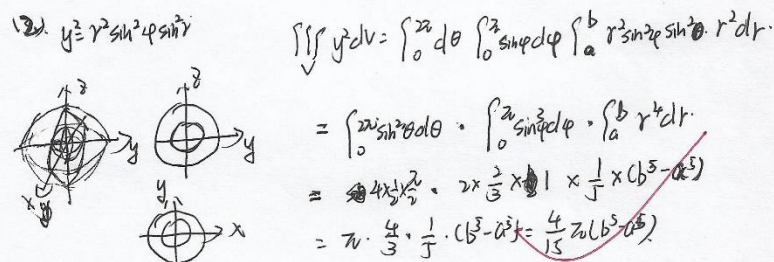 (2). y² = r² sin²φ sin²r
∭_V y²dV = ∫₀^{2π} dθ ∫₀^π sinφdφ ∫ₐᵇ r² sin²φ sin²θ · r² dr.
= ∫₀^{2π} sin²θdθ · ∫₀^π sin³φdφ · ∫ₐᵇ r⁴ dr.
= 4×½×π/2 · 2×2/3×1 × 1/5 × (b⁵-a⁵)
= π · 4/3 · 1/5 · (b⁵-a⁵) = 4/15 π(b⁵-a⁵)
z
y
x
z
y
y
x